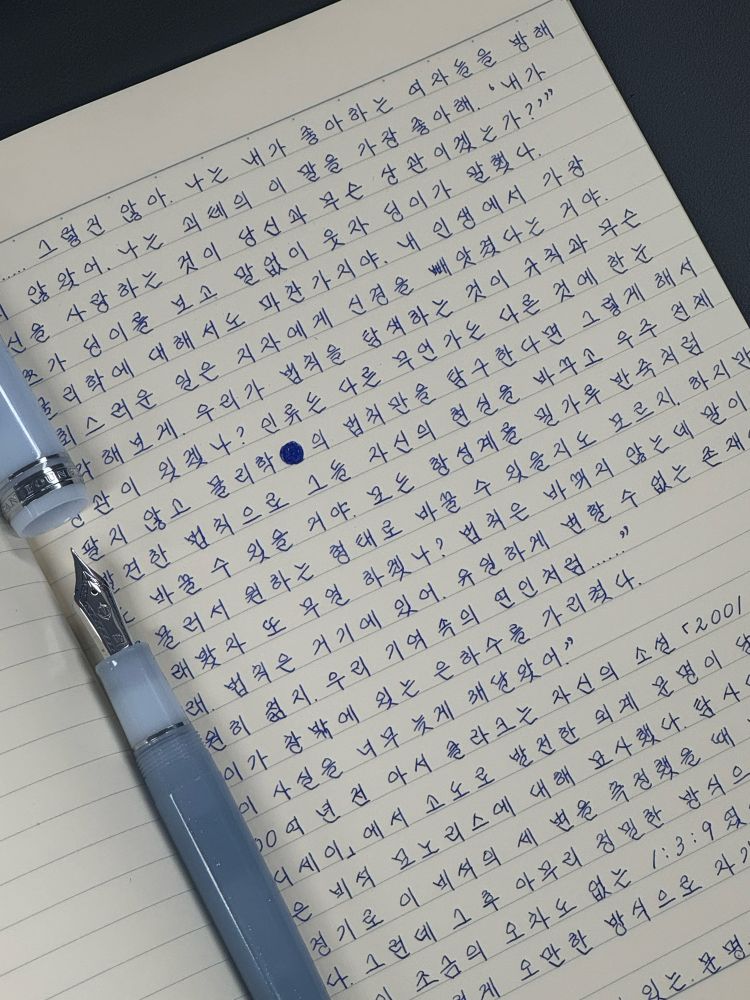 그럴건 않아. 나는 내가 좋아하는 여자들을 방해
않았어. 나는 괴테의 이 말을 가장 좋아해. '내가
신을 사랑하는 것이 당신과 무슨 상관이겠는가?'"
가 딩이를 보고 말없이 웃자 딩이가 말했다.
물리학에 대해서도 마찬가지야. 내 인생에서 가장
스러운 일은 지자에게 신경을 빼앗겼다는 거야.
해보게. 우리가 법칙을 탐색하는 것이 규칙과 무슨
상관이 있겠나? 인류는 다른 무언가는 다른 것에 한눈
팔지 않고 물리학의 법칙만을 탐구한다면 그렇게 해서
발견한 법칙으로 그들 자신의 현실을 바꾸고 우주 전체
바꿀 수 있을 거야. 모든 항성계를 밀가루 반죽처럼
물러서 원하는 형태로 바꿀 수 있을지도 모르지. 하지만
래봤자 또 무얼 하겠나? 법칙은 바뀌지 않는데 말이
래. 법칙은 거기에 있어. 유일하게 변할 수 없는 존재
원히 젊지. 우리 기억 속의 연인처럼......"
이가 창밖에 있는 은하수를 가리켰다.
이 사실을 너무 늦게 깨달았어."
00여 년 전 아서 클라크는 자신의 소설 「2001
디세이」에서 고도로 발전한 외계 문명이
은 비석 모노리스에 대해 묘사했다. 탐사
정기로 이 비석의 세 변을 측정했을 때
다. 그런데 그 후 아무리 정밀한 방식으
이 조금의 오차도 없는 1:3:9 였
게 오만한 방식으로 자기
있는. 문명
JINHAO